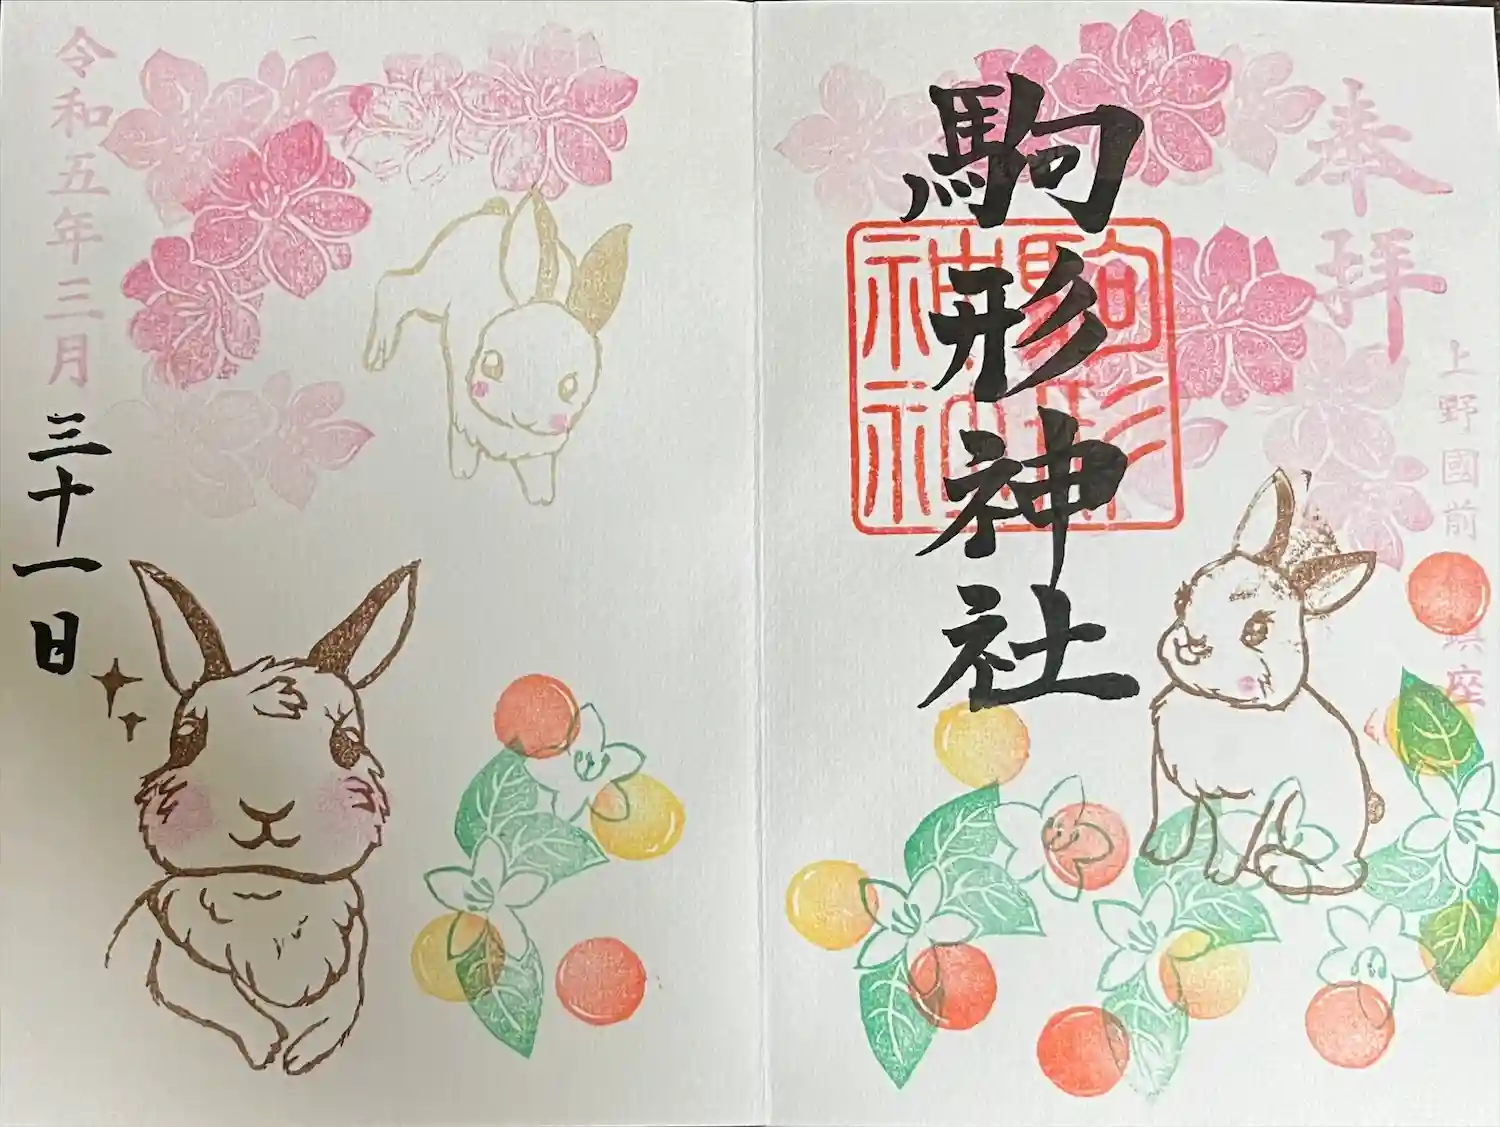 奉拝
上野國前 鎮座
駒形神社
駒形
神社
令和五年三月
三十一日